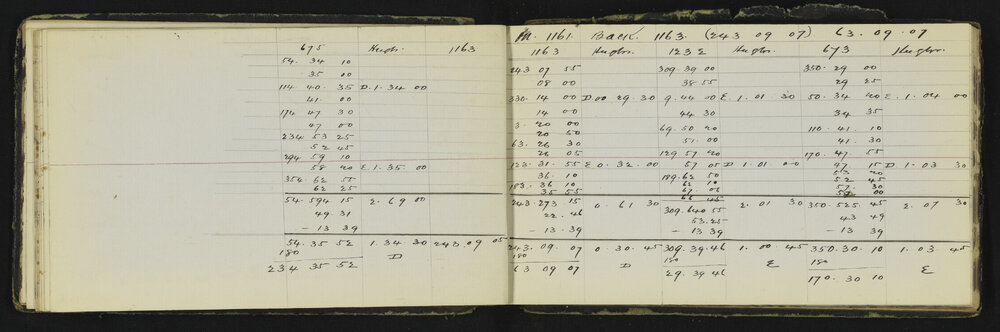 675 Heights. 1163
54. 34 10
35 00
114 40. 35 D. 1. 34 00
41. 00
174 47 30
47 00
234 53 25
52 45
294 59 10
58 20 E. 1. 35 00
354. 62 55
62 25
54. 594 15 2. 69 00
49. 31
- 13 39
54. 35 52 1. 34 30 243. 09 05
180 D
234 35 52
At. 1161. Back. 1163. (243 09 07) 63. 09. 07
1163 Heights. 1232 Heights. 673 Heights.
243 07 55 309. 39 00 350. 29 00
08 00 38. 55 29 25
330. 14 00 D 00 29. 30 9. 44 00 E. 1. 01. 30 50. 34 20 E. 1. 04 00
14 00 44 30 34 35
3. 20 00 69. 50 20 110. 41. 10
20 50 51. 00 41. 30
63. 26 30 129. 57. 20 170. 47. 55
26 05
123. 31. 55 E 0. 32. 00 57 05 D 1. 01. 00 47 15 D 1. 03 30
36. 10 189. 62 50 53 20
183. 36 10 62 10 52 45
35 55 57. 30
243. 273 15 0. 61 30 66 45 2. 01 30 350. 525. 45 2. 07 30
22. 46 309. 640 55 43 49
53. 25
- 13. 39 - 13 39 - 13 39
243. 09. 07 0. 30. 45 309. 39. 46 1. 00. 45 350. 30. 10 1. 03 45
180 D 180 E 180 E
63 09 07 29. 39 46 170. 30 10